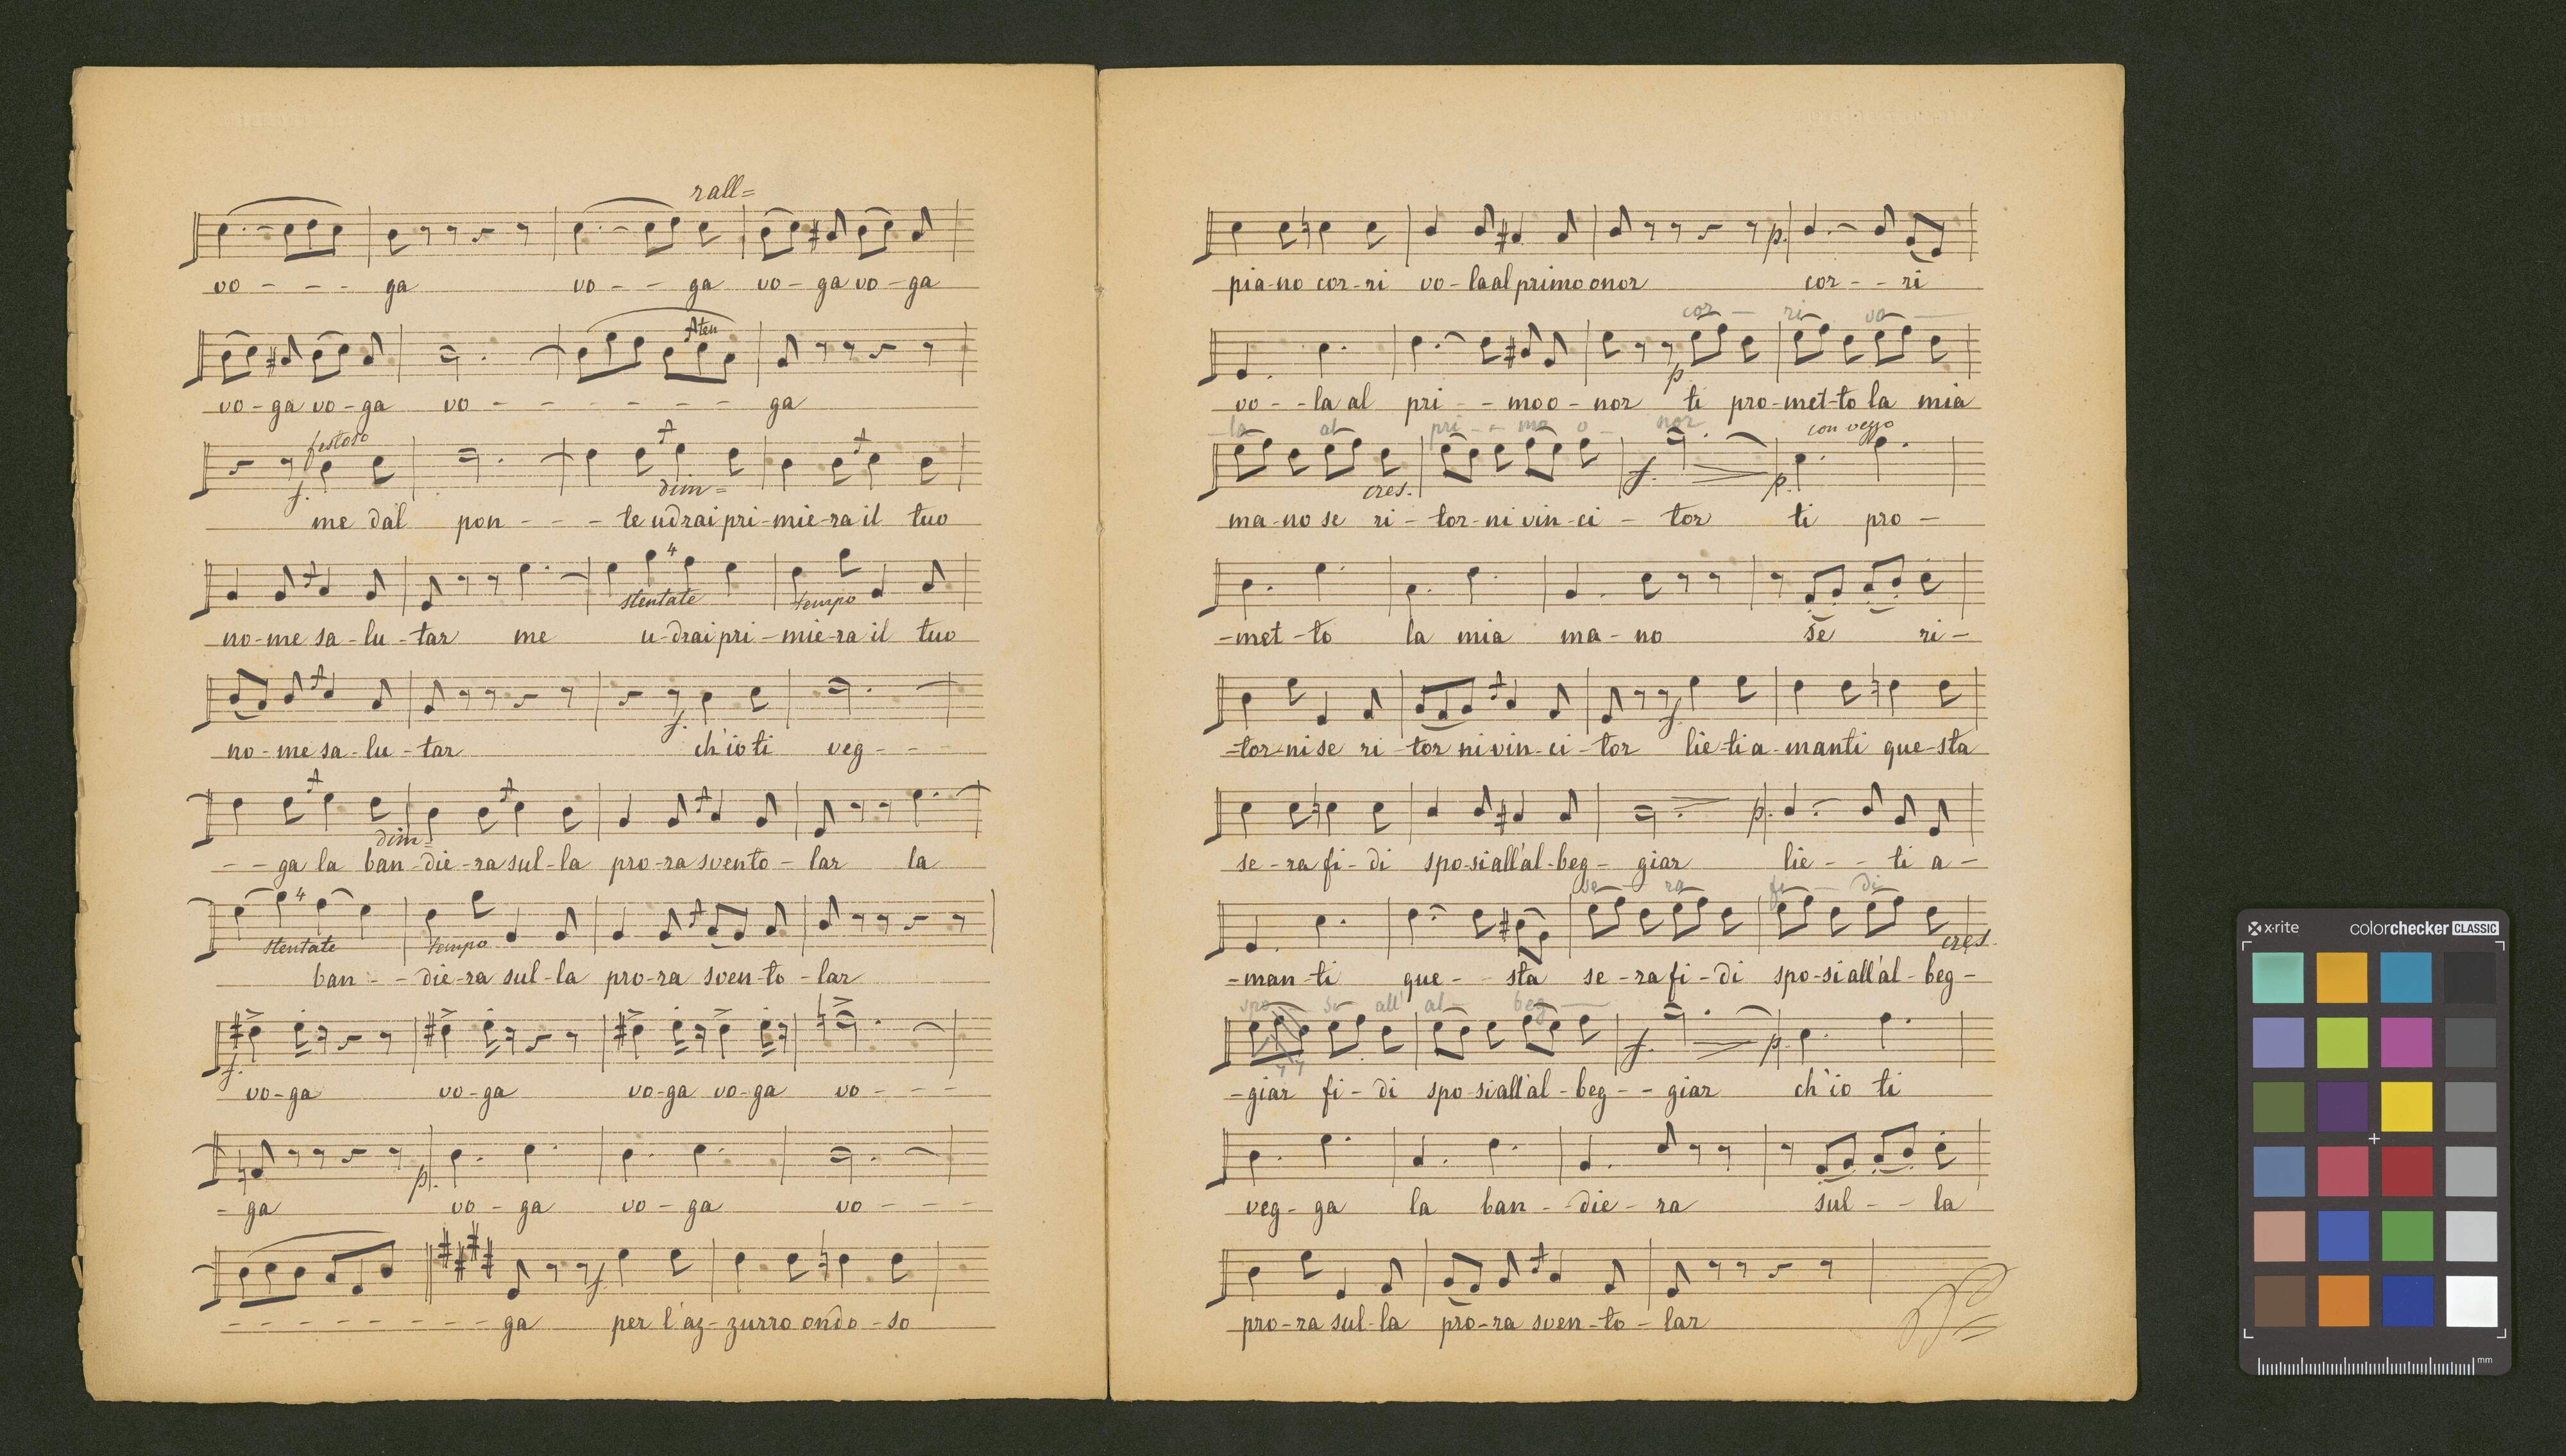 rall=
vo - - - ga vo - - ga vo - ga vo - ga
Aten
vo - ga vo - ga vo - - - - - - - ga
festoso
f.
dim =
me dal pon - - - te udrai pri - mie - ra il tuo
4
stentate tempo
no - me sa - lu - tar me u - drai pri - mie - ra il tuo
f.
no - me sa - lu - tar ch'io ti veg - - -
dim =
- - ga la ban - die - ra sul - la pro - ra svento - lar la
4
stentate tempo
ban - - die - ra sul - la pro - ra sven - to - lar
f.
vo - ga vo - ga vo - ga vo - ga vo - - - -
p.
- ga vo - ga vo - ga vo - - - -
f
- - - - - - - - - ga per l'az - zurro ondo - so
p.
pia - no cor - ri vo - la al primo onor cor - - ri
cor - ri vo -
p
vo - - la al pri - - mo o - nor ti pro - met - to la mia
la al pri - - mo o - nor
con vezzo
cres. f. p.
ma - no se ri - tor - ni vin - ci - tor ti pro -
- met - to la mia ma - no se ri -
f
- tor - ni se ri - tor ni vin - ci - tor lie - ti a - manti que - sta
p.
se - ra fi - di spo - si all'al - beg - giar lie - - ti a -
se - ra fi - di
cres.
- man - ti que - - sta se - ra fi - di spo - si all'al - beg -
spo - si all' al - beg -
f. p.
- giar fi - di spo - si all'al - beg - - giar ch'io ti
veg - ga la ban - - die - ra sul - - la
pro - ra sul - la pro - ra sven - to - lar
x·rite colorchecker CLASSIC
mm